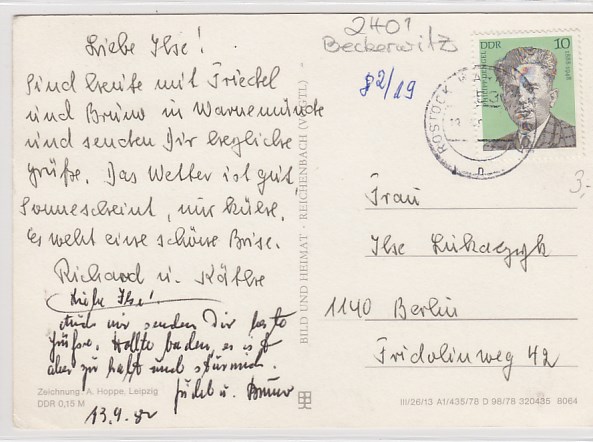 2401
Beckerwitz
Liebe Ilse!
Sind heute mit Friedel
und Bruno in Warnemünde
und senden Dir herzliche
Grüße. Das Wetter ist gut,
Sonnenscheint, nur kühle.
Es weht eine schöne Brise.
Richard u. Käthe
Liebe Ilse!
Auch wir senden Dir beste
Grüße. Wollte baden, es ist
aber zu kalt und stürmisch.
Friedel u. Bruno
13.9.82
Zeichnung: A. Hoppe, Leipzig
DDR 0,15 M
BILD UND HEIMAT · REICHENBACH (VOGTL)
82/19
DDR 10
ROSTOCK
3,-
Frau
Ilse Lukaczyk
1140 Berlin
Fridolinweg 42
III/26/13 A1/435/78 D 98/78 320435 8064